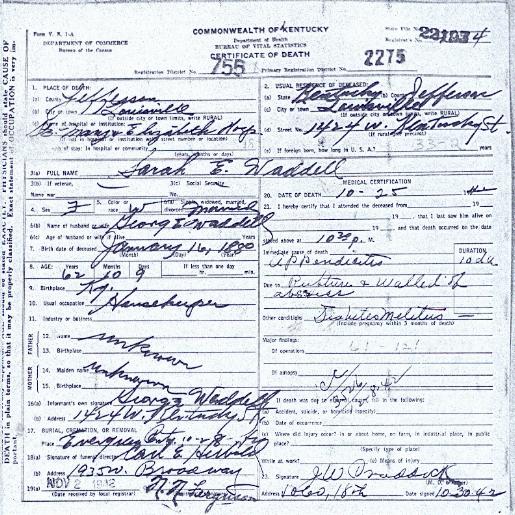 Form V. S. 1-A
DEPARTMENT OF COMMERCE
Bureau of the Census
COMMONWEALTH OF KENTUCKY
Department of Health
BUREAU OF VITAL STATISTICS
CERTIFICATE OF DEATH
State File No.
Registrar's No.
Registration District No. 755
Primary Registration District No. 2275
1. PLACE OF DEATH:
(a) County Jefferson
(b) City or town Louisville
(If outside city or town limits, write RURAL)
(c) Name of hospital or institution:
St. Mary & Elizabeth Hosp
2. USUAL RESIDENCE OF DECEASED:
(a) State Kentucky (b) County Jefferson
(c) City or town Louisville
(If outside city or town limits, write RURAL)
(d) Street No. 1424 W. Kentucky St
(e) If foreign born, how long in U. S. A.? years
3(a) FULL NAME Sarah E. Waddell
3(b) If veteran,
Name war
3(c) Social Security
4. Sex F 5. Color or race W
widowed, married, divorced Married
6(b) Name of husband or wife George Waddell
6(c) Age of husband or wife if alive Years
7. Birth date of deceased January 16, 1880
(Month) (Day) (Year)
8. AGE: Years 62 Months 10 Days 9 If less than one day
hr. min.
9. Birthplace Ky.
10. Usual occupation Housekeeper
11. Industry or business
FATHER
12. Name unknown
13. Birthplace
MOTHER
14. Maiden name unknown
15. Birthplace
16(a) Informant's own signature George Waddell
(b) Address 1424 W. Kentucky St
17. BURIAL, CREMATION, OR REMOVAL
Place Evergreen Cem. 10-28
18(a) Signature of funeral director Carl E.
(b) Address 1935 W. Broadway
19(a) NOV 2 1942
(Date received by local registrar)
MEDICAL CERTIFICATION
20. DATE OF DEATH 10-25 42
21. I hereby certify that I attended the deceased from
19 , to 19 , that I last saw him alive on
19 , and that death occurred on the date
stated above at 10 30 p. M.
Immediate cause of death DURATION
Appendicitis 10 da
Due to Rupture & Walled off
abscess
Other conditions Diabetes Melitus
(Include pregnancy within 3 months of death)
Major findings:
Of operations
Of autopsy
22. If death was due to external causes, fill in the following:
(a) Accident, suicide, or homicide (specify)
(b) Date of occurrence
(c) Where did injury occur? in or about home, on farm, in industrial place, in public place?
(Specify type of place)
While at work? (e) Means of injury
23. Signature J W Craddock
Address 1060, 18th Date signed 10-30-42